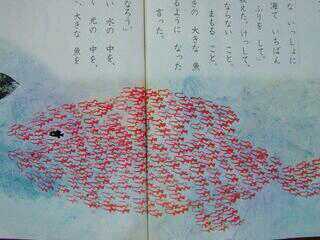 な いっしょに
海で いちばん
ふりを して。」
教えた。けっして、
ならない こと。
まもる こと。
きの 大きな 魚
るように なった
言った。
なろう。」
い 水の 中を、
光の 中を、
、大きな 魚を